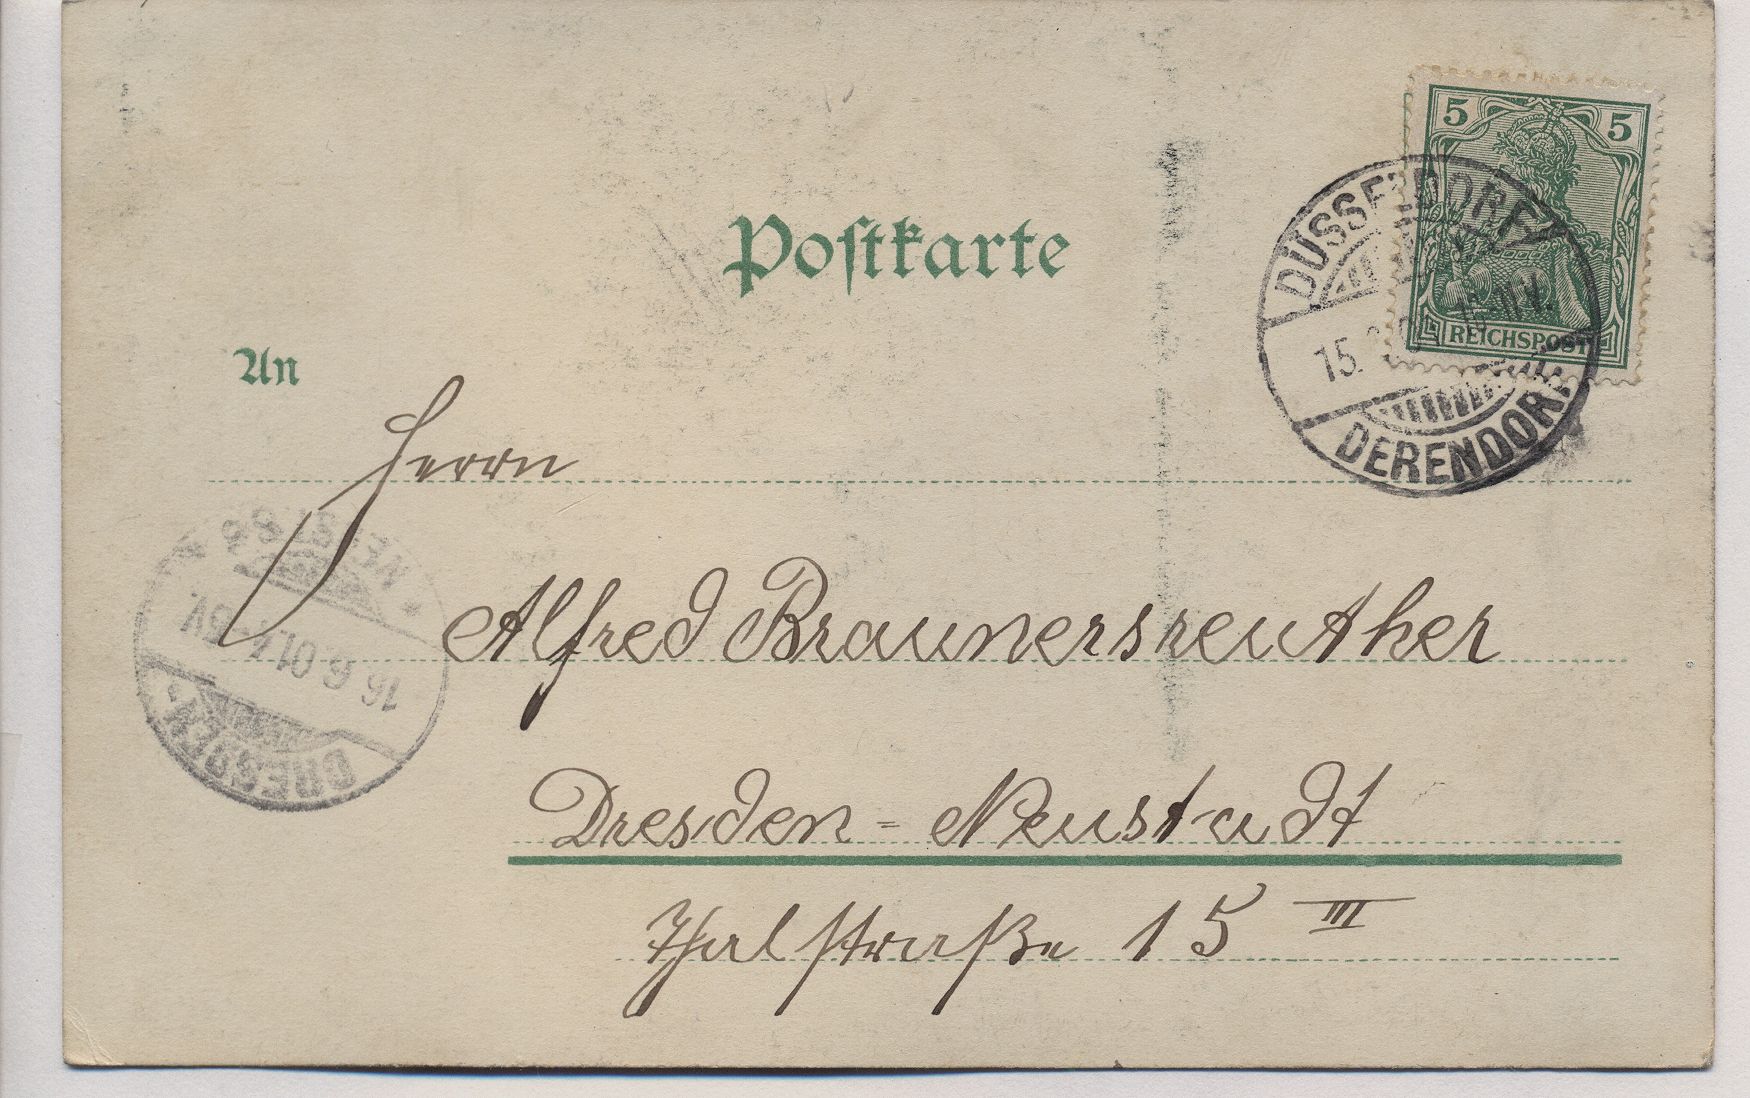 5 5
REICHSPOST
DÜSSELDORF
15.
DERENDORF
Postkarte
An
Herrn
Alfred Braunersreuther
Dresden = Neustadt
Thalstraße 15 III
DRESDEN
16 6 01
NEUST.